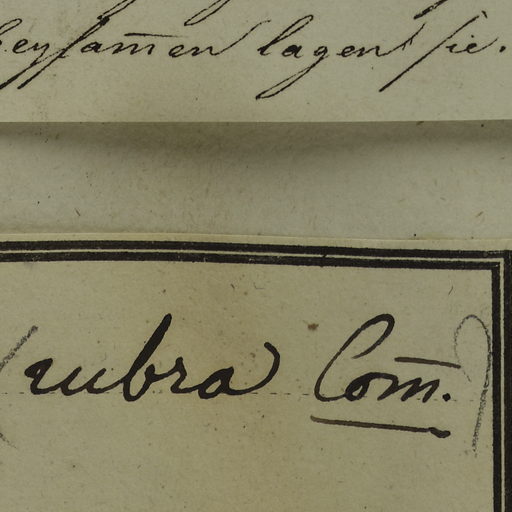 beysam̄en lagen sie.
(rubra Com̄.)